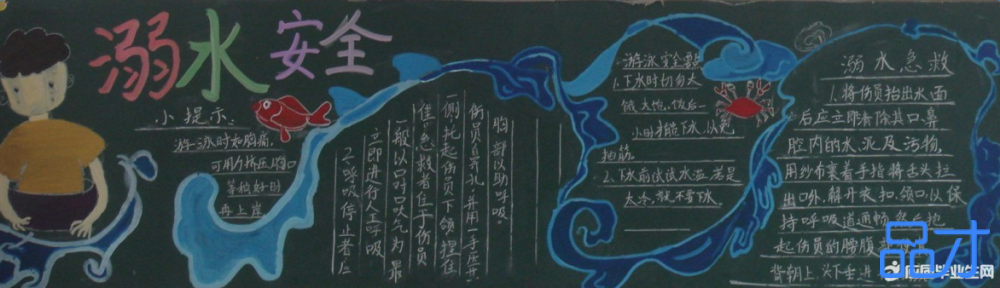 溺水安全
小提示:
游泳时如胸痛,
可用力挤压胸口
等稍好时
再上岸
2.呼吸停止者应
立即进行人工呼吸
一般以口对口吹气为最
佳。急救者位于伤员
一侧,托起伤员下颌,捏住
伤员鼻孔,并用一手压其
胸部以助呼吸。
游泳安全
1.下水时切勿太
饿、太饱。饭后一
小时才能下水,以免
抽筋。
2.下水前试试水温,若是
太冷,就不要下水。
溺水急救
1.将伤员抬出水面
后应立即清除其口、鼻
腔内的水、泥及污物,
用纱布裹着手指将舌头拉
出口外,解开衣扣、领口,以保
持呼吸道通畅,然后抱
起伤员的腰腹
背朝上、头下垂进
品才
应届毕业生网